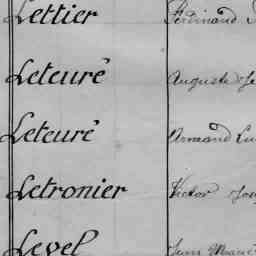 Lettier Ferdinand
Leteurê Auguste
Leteurê Armand
Letronier Victor
Level Jean Marie